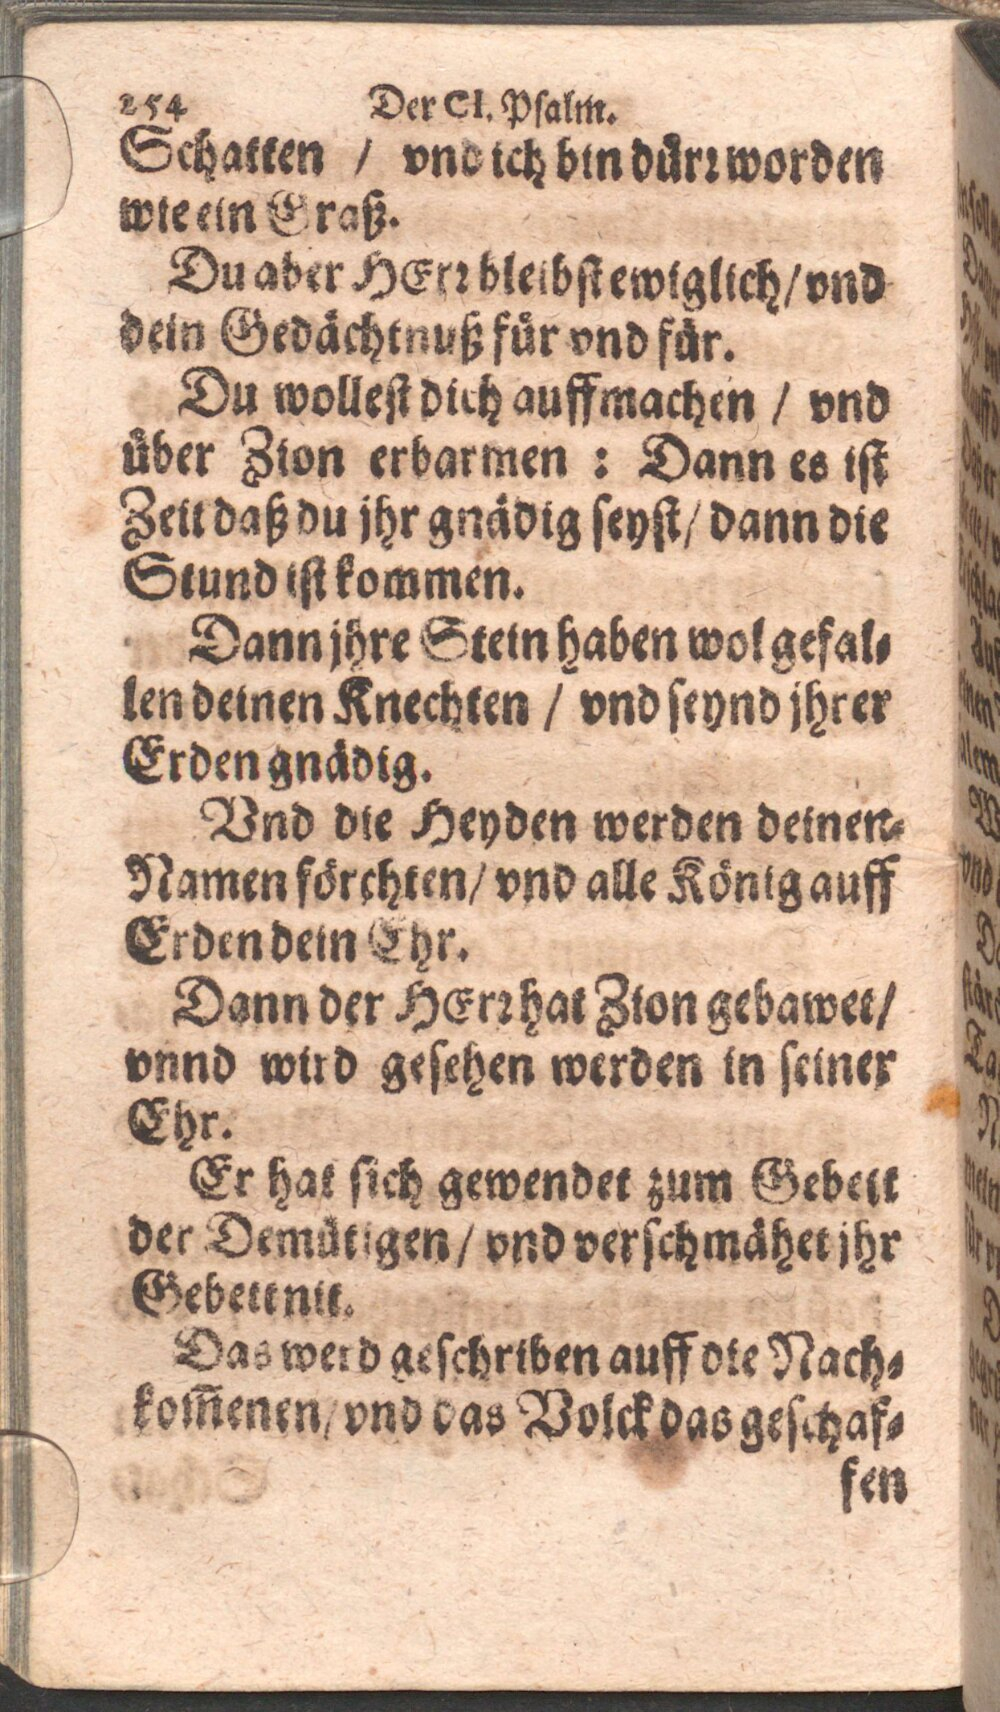 254 Der CI. Psalm.
Schatten / vnd ich bin dürꝛ worden
wie ein Graß.
Du aber HErꝛ bleibst ewiglich / vnd
dein Gedächtnuß für vnd für.
Du wollest dich auffmachen / vnd
über Zion erbarmen : Dann es ist
Zeit daß du jhr gnädig seyst / dann die
Stund ist kommen.
Dann jhre Stein haben wol gefal⸗
len deinen Knechten / vnd seynd jhrer
Erden gnädig.
Vnd die Heyden werden deinen⸗
Namen förchten / vnd alle König auff
Erden dein Ehr.
Dann der HErꝛ hat Zion gebawet /
vnnd wird gesehen werden in seiner
Ehr.
Er hat sich gewendet zum Gebett
der Demütigen / vnd verschmähet jhr
Gebett nit.
Das werd geschriben auff die Nach⸗
kom̃enen / vnd das Volck das geschaf⸗
fen